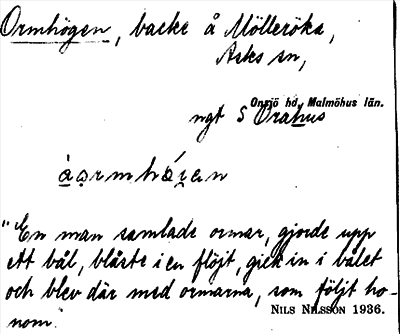 Ormhögen, backe å Mölleröka,
Asks sn,
Onsjö hd, Malmöhus län.
ngt S Orahus
"En man samlade ormar, gjorde upp
ett bål, blåste i en flöjt, gick in i bålet
och blev där med ormarna, som följt ho-
nom."
NILS NILSSON 1936.